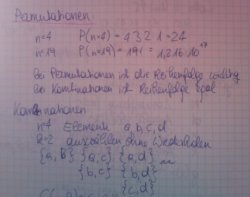 Permutationen
n=4 P(n=4) = 4·3·2·1=24
n=19 P(n=19) = 19! = 1,216·10^17
Bei Permutationen ist die Reihenfolge wichtig
Bei Kombinationen ist Reihenfolge egal
Kombinationen
n=4 Elemente a,b,c,d
k=2 auswählen ohne Wiederholen
{a,b} {a,c} {a,d}
{b,c} {b,d}
{c,d}